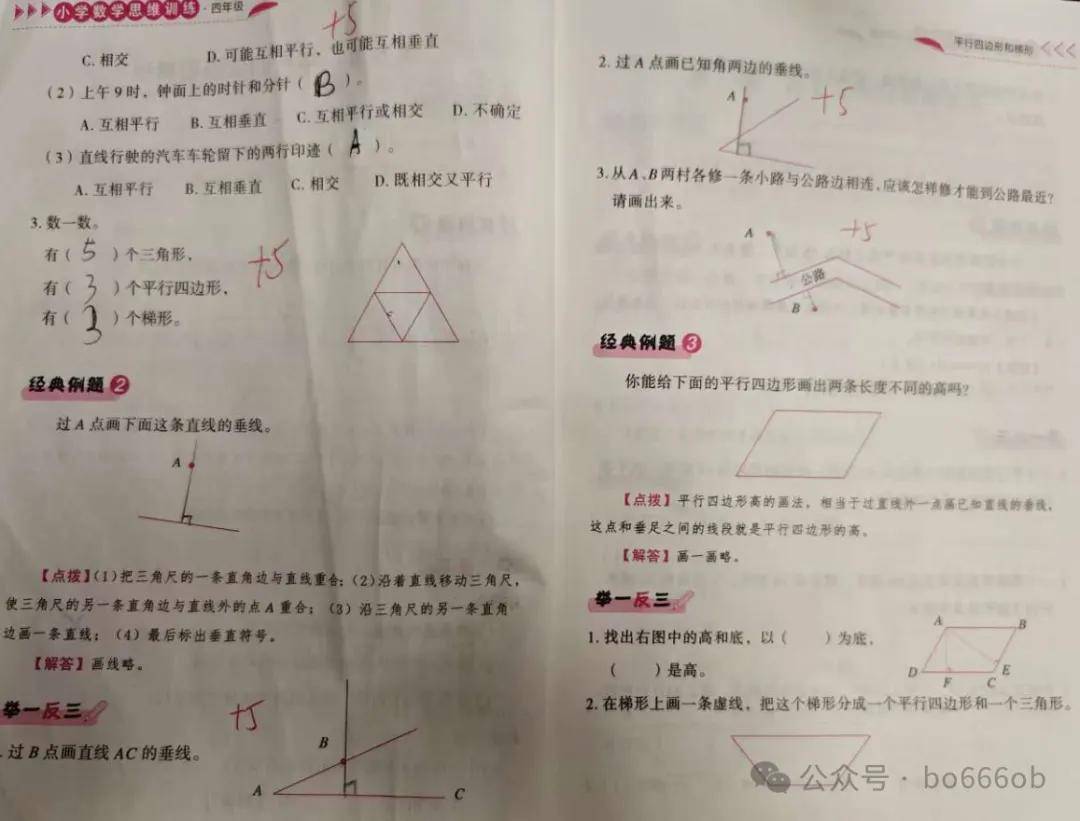 小学数学思维训练·四年级
+5
C. 相交 D. 可能互相平行，也可能互相垂直
(2) 上午9时，钟面上的时针和分针( B )。
A. 互相平行 B. 互相垂直 C. 互相平行或相交 D. 不确定
(3) 直线行驶的汽车车轮留下的两行印迹( A )。
A. 互相平行 B. 互相垂直 C. 相交 D. 既相交又平行
3. 数一数。
有( 5 )个三角形，
有( 3 )个平行四边形，
有( 3 )个梯形。
+5
经典例题 2
过A点画下面这条直线的垂线。
A
【点拨】(1)把三角尺的一条直角边与直线重合；(2)沿着直线移动三角尺，
使三角尺的另一条直角边与直线外的点A重合；(3)沿三角尺的另一条直角
边画一条直线；(4)最后标出垂直符号。
【解答】画线略。
举一反三
+5
. 过B点画直线AC的垂线。
B
A C
平行四边形和梯形
2. 过A点画已知角两边的垂线。
A
+5
3. 从A、B两村各修一条小路与公路边相连，应该怎样修才能到公路最近？
请画出来。
A
+5
公路
B
经典例题 3
你能给下面的平行四边形画出两条长度不同的高吗？
【点拨】平行四边形高的画法，相当于过直线外一点画已知直线的垂线，
这点和垂足之间的线段就是平行四边形的高。
【解答】画一画略。
举一反三
1. 找出右图中的高和底，以( )为底，
( )是高。
A B
D F C E
2. 在梯形上画一条虚线，把这个梯形分成一个平行四边形和一个三角形。
公众号·bo666ob